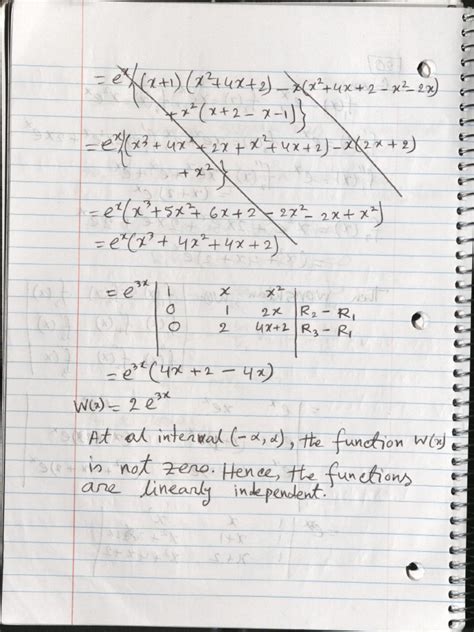 = e^x {(x+1) (x²+4x+2) - x(x²+4x+2-x²-2x)
+ x²(x+2-x-1)}
= e^x {(x³+4x²+2x+x²+4x+2) - x(2x+2)
+ x²}
= e^x (x³+5x²+6x+2-2x²-2x+x²)
= e^x (x³+4x²+4x+2)
= e^3x | 1 x x² |
| 0 1 2x | R₂-R₁
| 0 2 4x+2 | R₃-R₁
= e^3x (4x+2-4x)
W(x) = 2e^3x
At al interval (-α, α), the function W(x)
is not zero. Hence, the functions
are linearly independent.